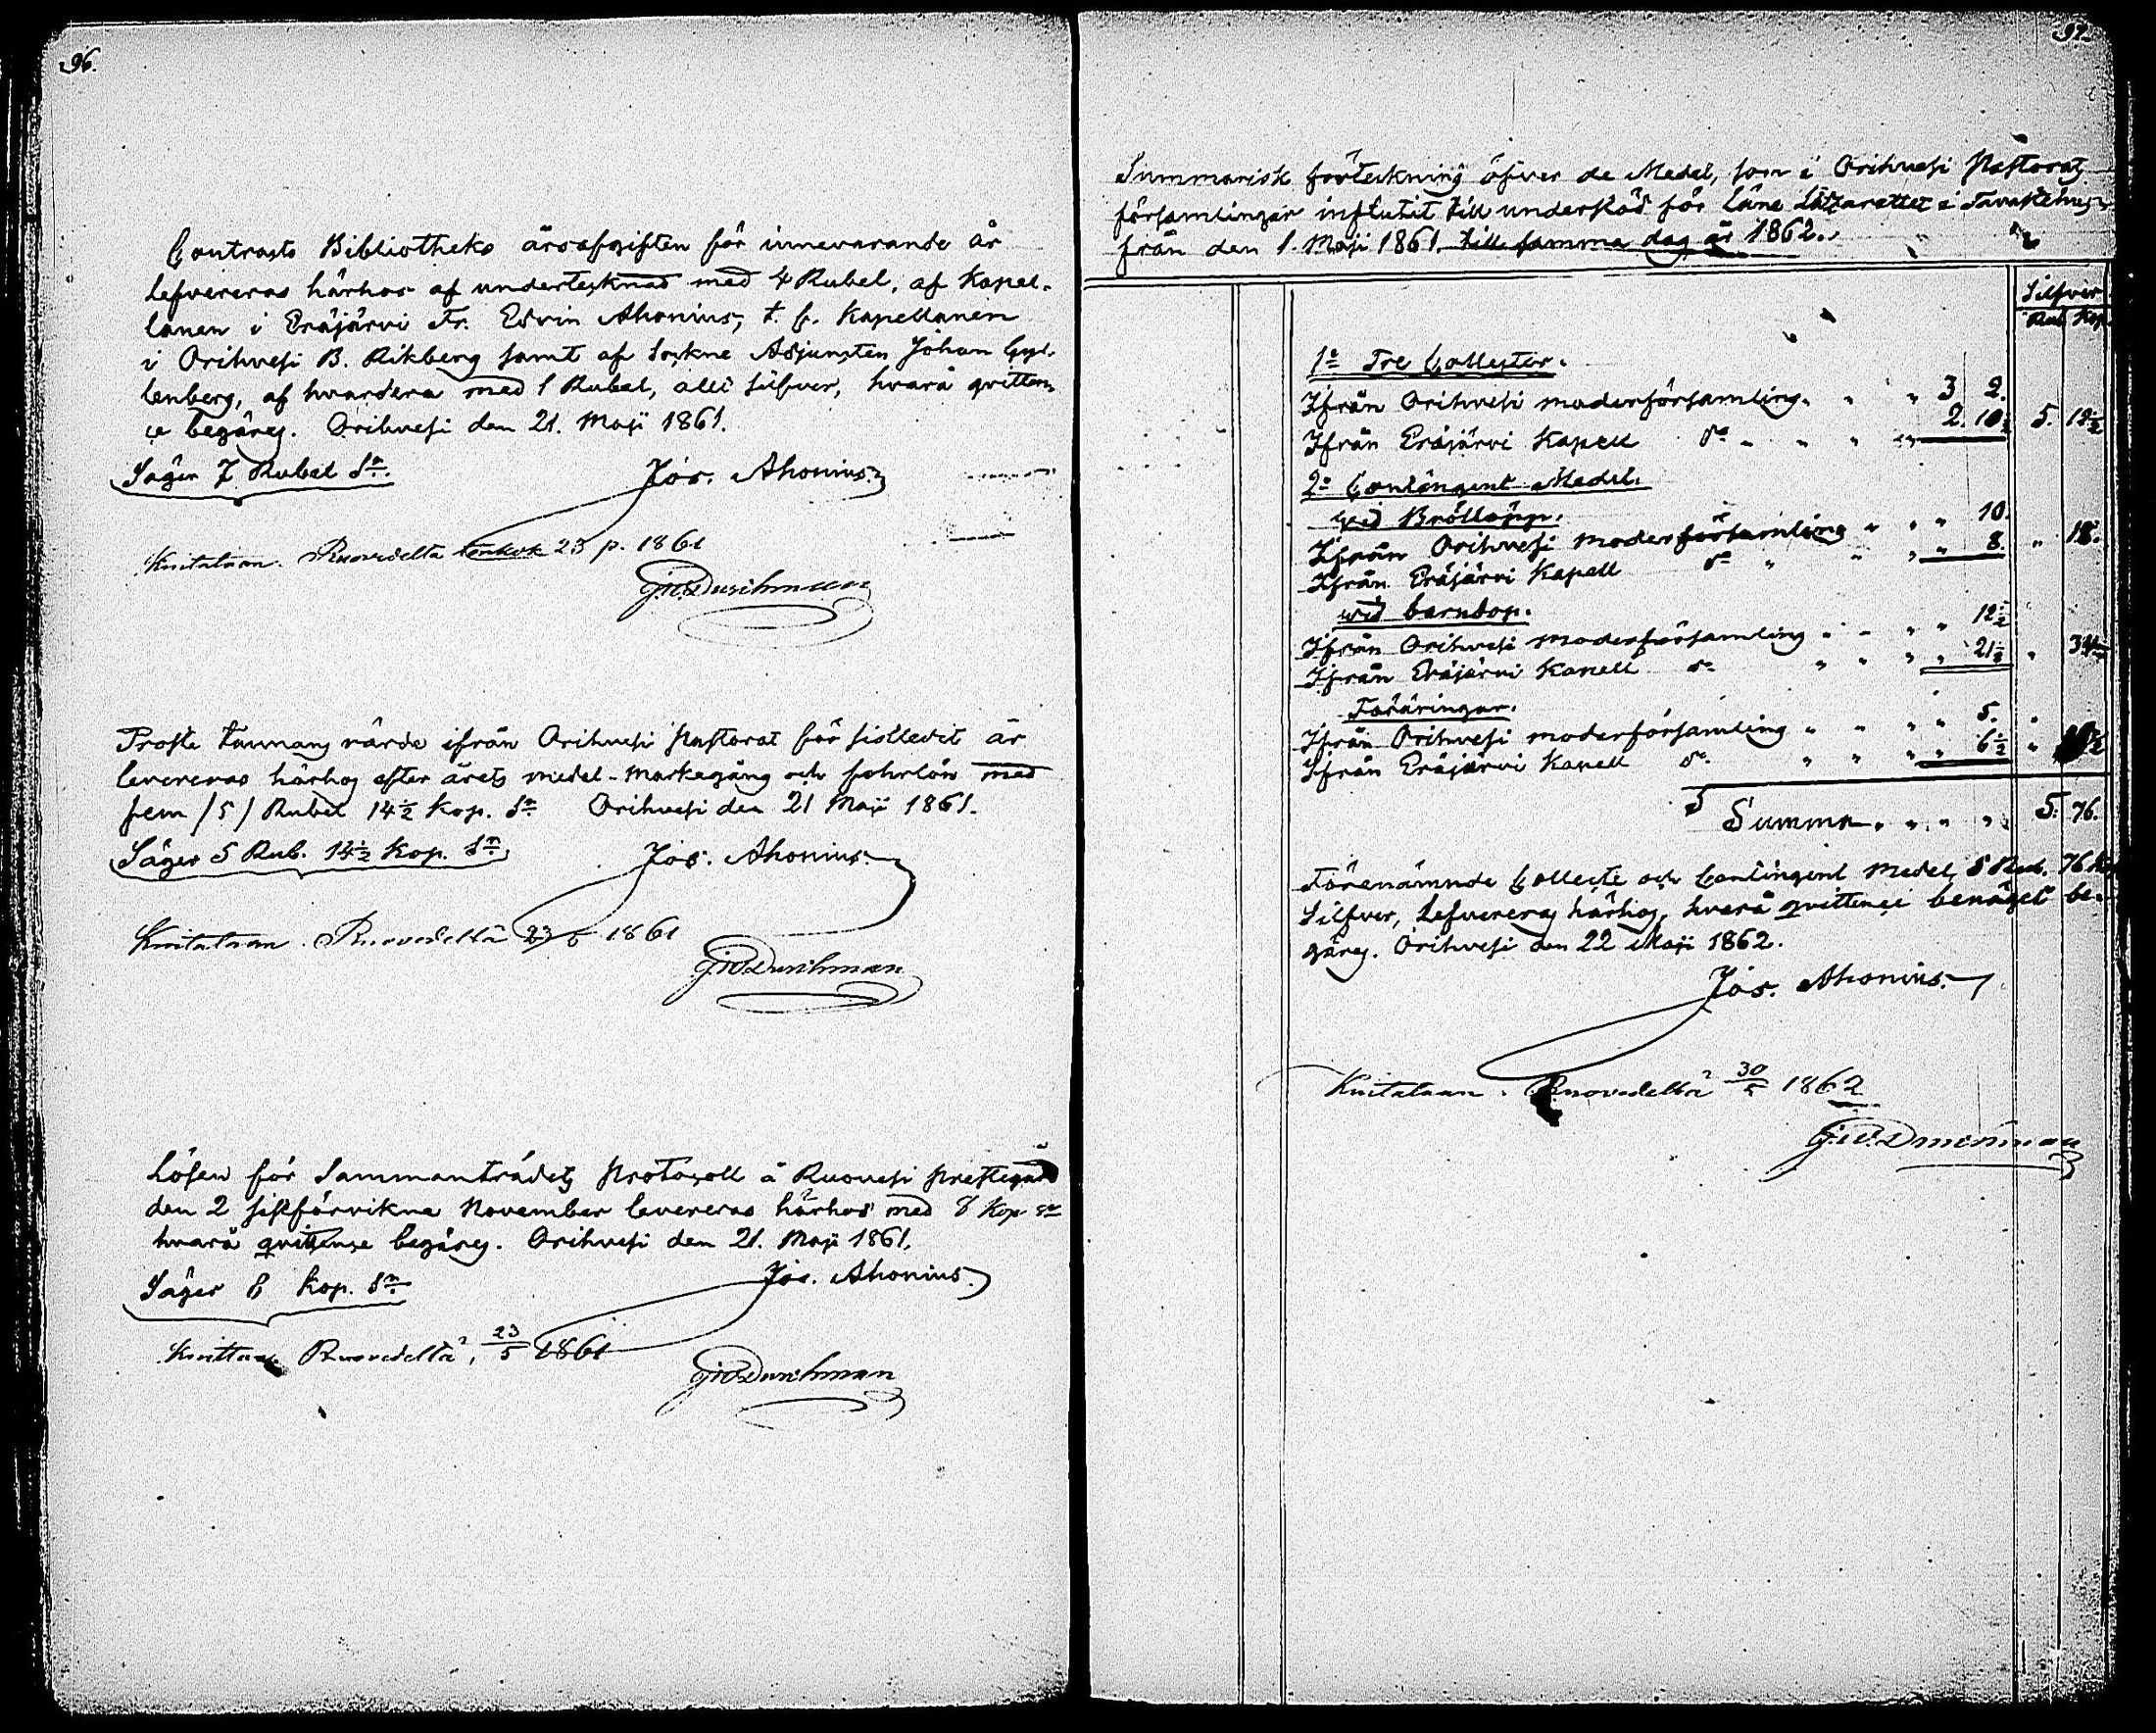 96.
Contracts Bibliotheks årsafgiften för innevarande år
lefvereras härhos af undertecknad med 4 Rubel, af Kapel-
lanen i Eräjärvi Fr. Edvin Ahonius, t. f. Kapellanen
i Orihvesi B. Rikberg samt af Sockne Adjuncten Johan Gyl-
lenberg, af hvardera med 1 Rubel, allt silfver, hvarå qvitten-
ce begäres. Orihvesi den 21. Maji 1861.
Säger 7 Rubel Sr.
Jos. Ahonius.
Kuitataan. Ruovedeltä 23 p. 1861
Proste Tunnans värde ifrån Orihvesi Pastorat för sistledit år
levereras härhos efter årets medel-Markegång och forlön med
fem /5/ Rubel 14½ Kop. Sr Orihvesi den 21 Maji 1861.
Säger 5 Rub. 14½ Kop. Sr
Jos. Ahonius.
Kuitataan. Ruovedeltä 23/5 1861
Lösen för Sammanträdets Protocoll å Ruovesi Prestegård
den 2 sistförvikne November levereras härhos med 8 Kop Sr
hvarå qvittence begäres. Orihvesi den 21. Maji 1861.
Säger 8 Kop. Sr
Jos. Ahonius.
Ruovedeltä, 23/5 1861
97.
Summarisk förteckning öfver de Medel, som i Orihvesi Pastorats
församlingar influtit till underhåd för Läns Lazarettet i Tavastehus,
från den 1. Maji 1861. till samma dag år 1862.
Silfver
Rub. Kop.
1o Tre Collecter.
Ifrån Orihvesi moderförsamling. " " 3 2.
Ifrån Eräjärvi Kapell do " " " 2. 10½ 5. 12½
2o Contingent Medel.
wid Bröllopp.
Ifrån Orihvesi moderförsamling " " " 10.
Ifrån Eräjärvi Kapell do " " " 8. " 18.
wid barndop.
Ifrån Orihvesi moderförsamling " " " 12½
Ifrån Eräjärvi Kapell do " " " 21½ " 34
Föräringar.
Ifrån Orihvesi moderförsamling " " " 5.
Ifrån Eräjärvi Kapell do " " " 6½ "
Summa " " " 5. 76.
Förenämnde Collecte och Contingent Medel, 5 Rub. 76 Kop
Silfver, Lefvereras härhos, hvarå qvittence benäget be-
gäres. Orihvesi den 22 Maji 1862.
Jos. Ahonius.
Kuitataan. Ruovedeltä 30/5 1862